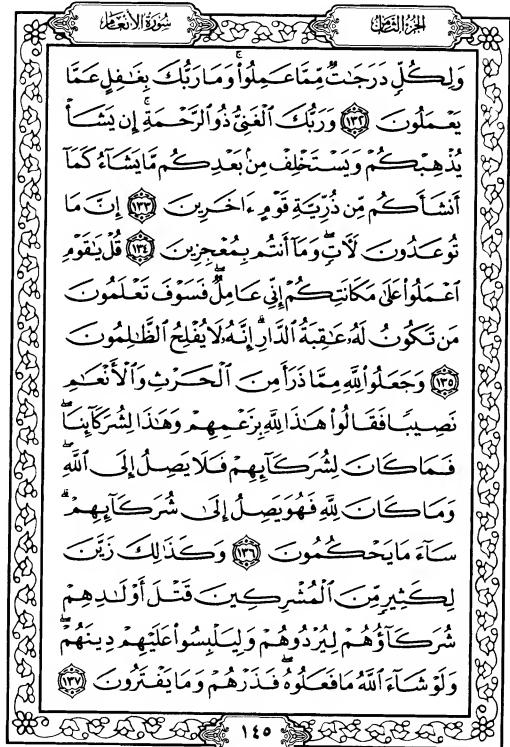 سُورَةُ الأَنْعَامِ
الجُزْءُ الثَّامِنُ
وَلِكُلٍّ دَرَجَٰتٌ مِّمَّا عَمِلُوا۟ ۚ وَمَا رَبُّكَ بِغَٰفِلٍ عَمَّا
يَعْمَلُونَ ١٣٢ وَرَبُّكَ الْغَنِىُّ ذُو الرَّحْمَةِ ۚ إِن يَشَأْ
يُذْهِبْكُمْ وَيَسْتَخْلِفْ مِنۢ بَعْدِكُم مَّا يَشَآءُ كَمَآ
أَنشَأَكُم مِّن ذُرِّيَّةِ قَوْمٍ ءَاخَرِينَ ١٣٣ إِنَّ مَا
تُوعَدُونَ لَأٓتٍ ۖ وَمَآ أَنتُم بِمُعْجِزِينَ ١٣٤ قُلْ يَٰقَوْمِ
اعْمَلُوا۟ عَلَىٰ مَكَانَتِكُمْ إِنِّى عَامِلٌ ۖ فَسَوْفَ تَعْلَمُونَ
مَن تَكُونُ لَهُۥ عَٰقِبَةُ الدَّارِ ۗ إِنَّهُۥ لَا يُفْلِحُ الظَّٰلِمُونَ
١٣٥ وَجَعَلُوا۟ لِلَّهِ مِمَّا ذَرَأَ مِنَ الْحَرْثِ وَالْأَنْعَٰمِ
نَصِيبًا فَقَالُوا۟ هَٰذَا لِلَّهِ بِزَعْمِهِمْ وَهَٰذَا لِشُرَكَآئِنَا ۖ
فَمَا كَانَ لِشُرَكَآئِهِمْ فَلَا يَصِلُ إِلَى اللَّهِ ۖ
وَمَا كَانَ لِلَّهِ فَهُوَ يَصِلُ إِلَىٰ شُرَكَآئِهِمْ ۗ
سَآءَ مَا يَحْكُمُونَ ١٣٦ وَكَذَٰلِكَ زَيَّنَ
لِكَثِيرٍ مِّنَ الْمُشْرِكِينَ قَتْلَ أَوْلَٰدِهِمْ
شُرَكَآؤُهُمْ لِيُرْدُوهُمْ وَلِيَلْبِسُوا۟ عَلَيْهِمْ دِينَهُمْ ۖ
وَلَوْ شَآءَ اللَّهُ مَا فَعَلُوهُ ۖ فَذَرْهُمْ وَمَا يَفْتَرُونَ ١٣٧
١٤٥